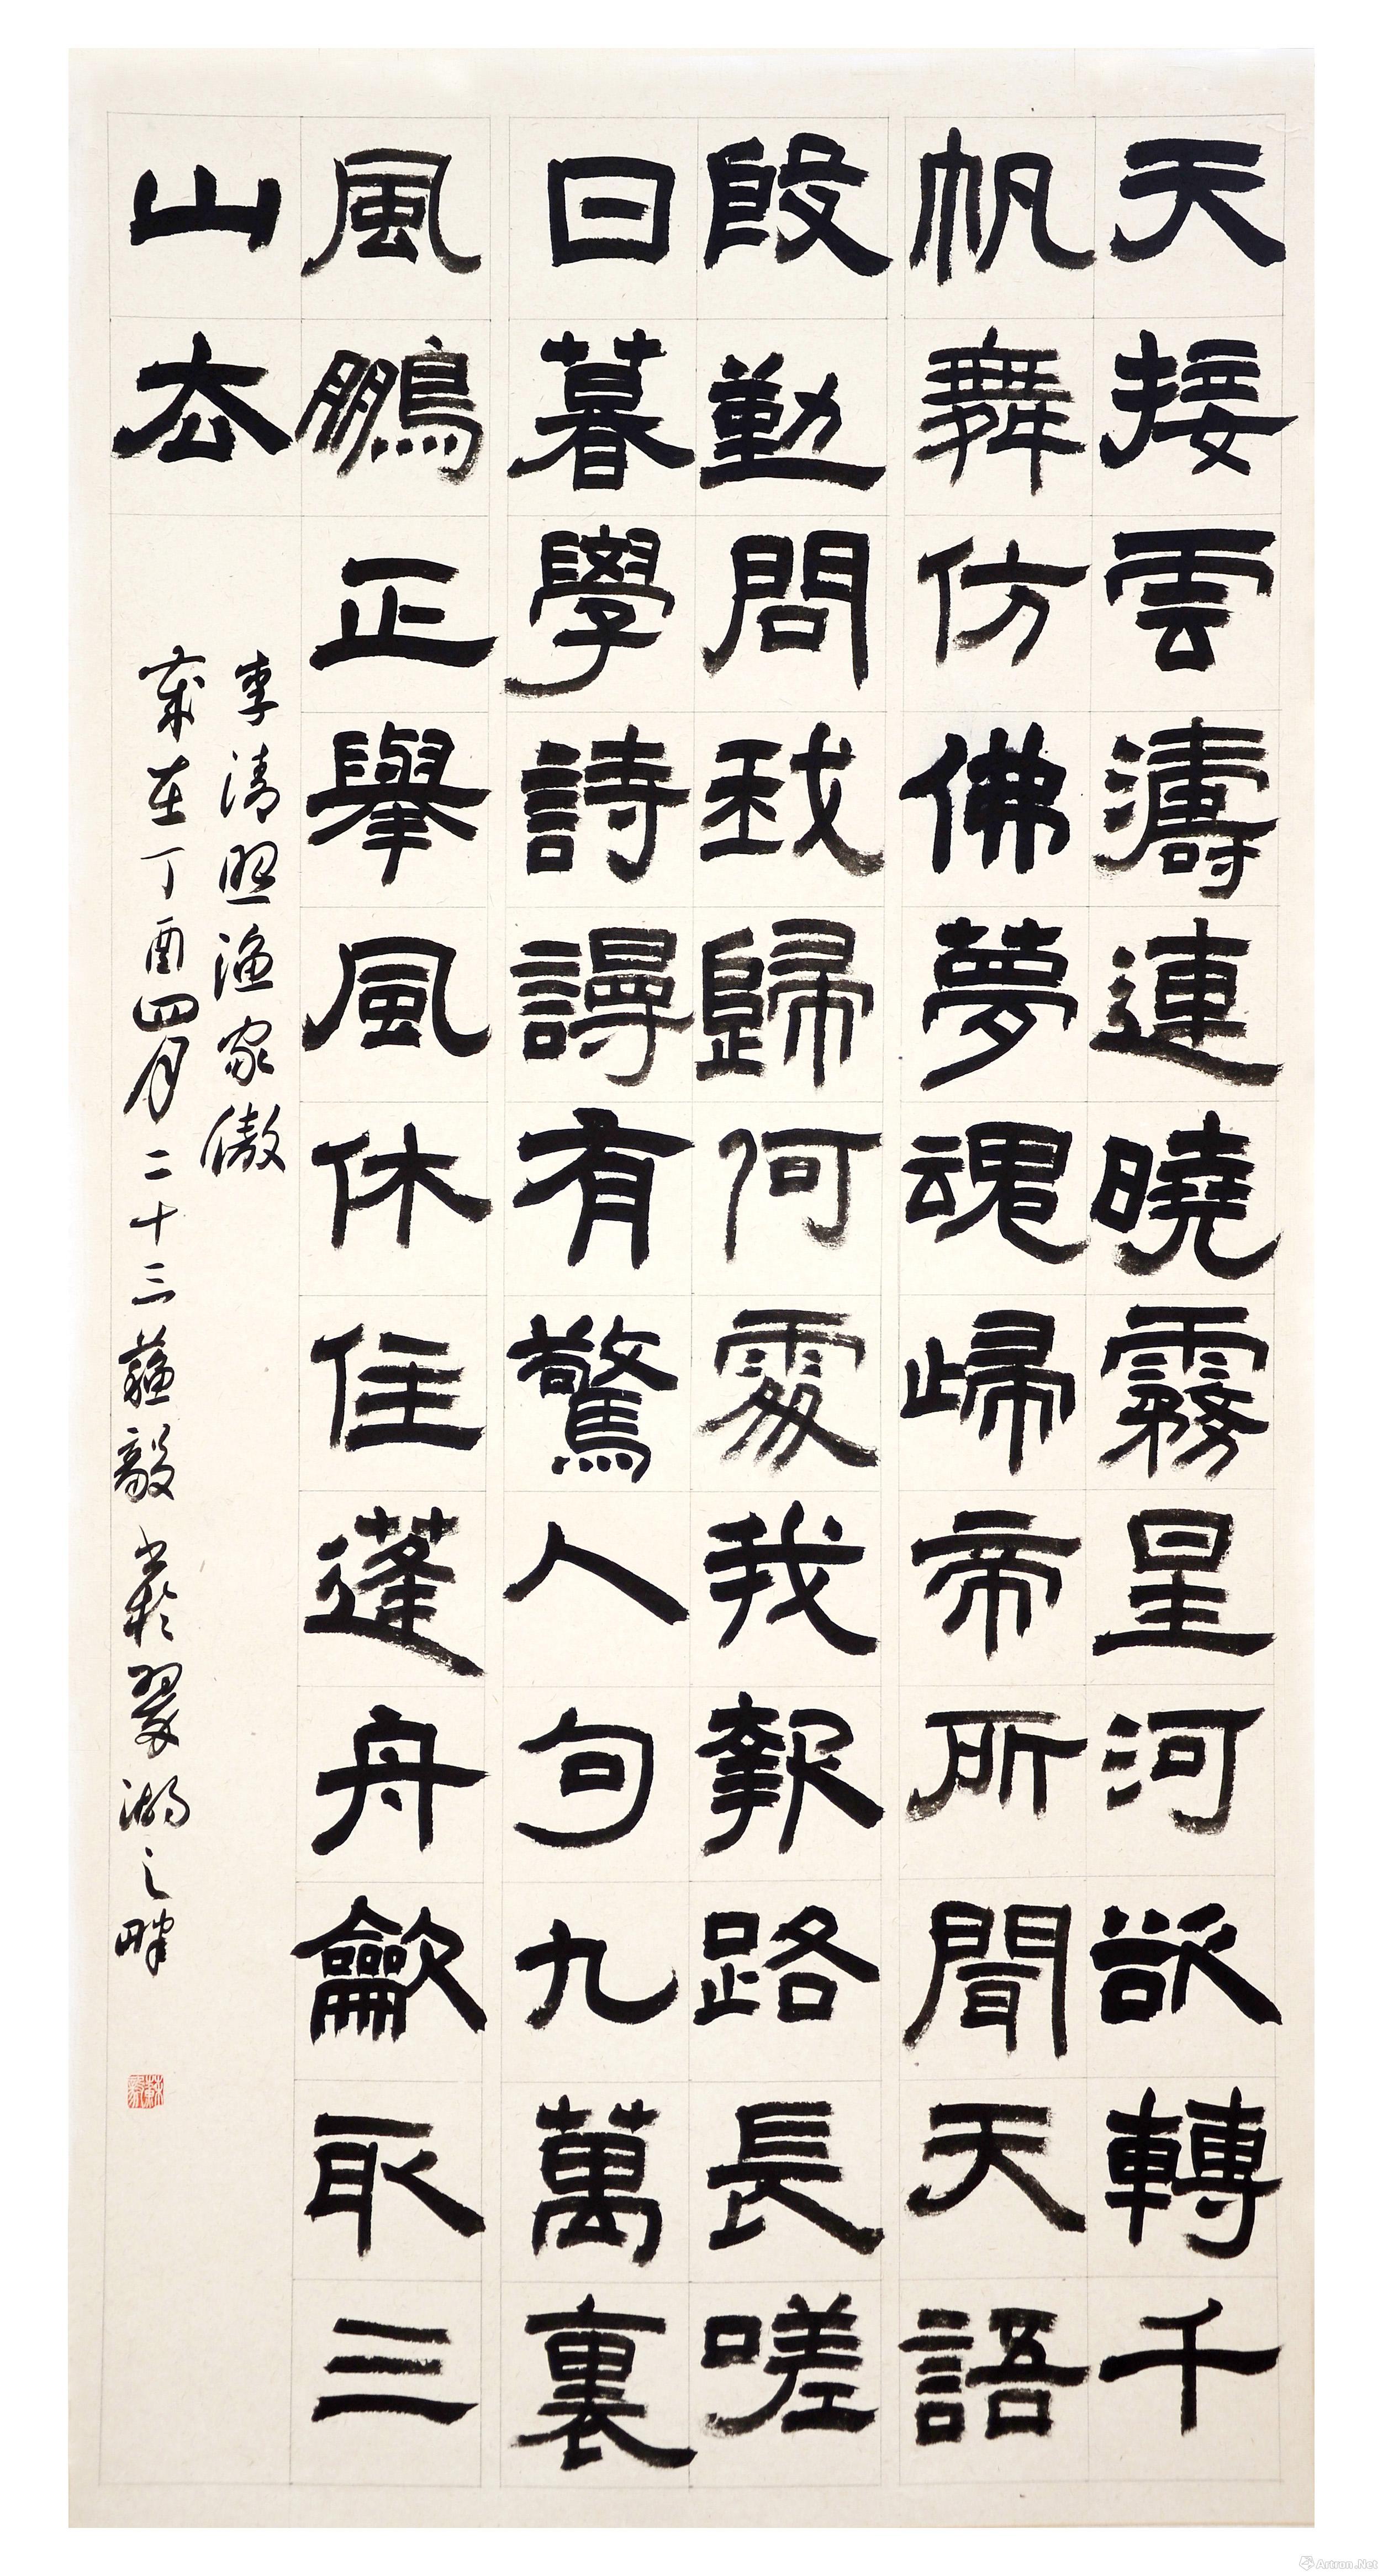 天接雲濤連曉霧星河欲轉千
帆舞仿佛夢魂㱕帝所聞天語
殷勤問我歸何處我報路長嗟
日暮學詩謾有驚人句九萬裏
風鵬正舉風休住蓬舟龡取三
山去
李清照漁家傲
歲在丁酉四月二十三蘇毅書於翠湖之畔
Artron.Net